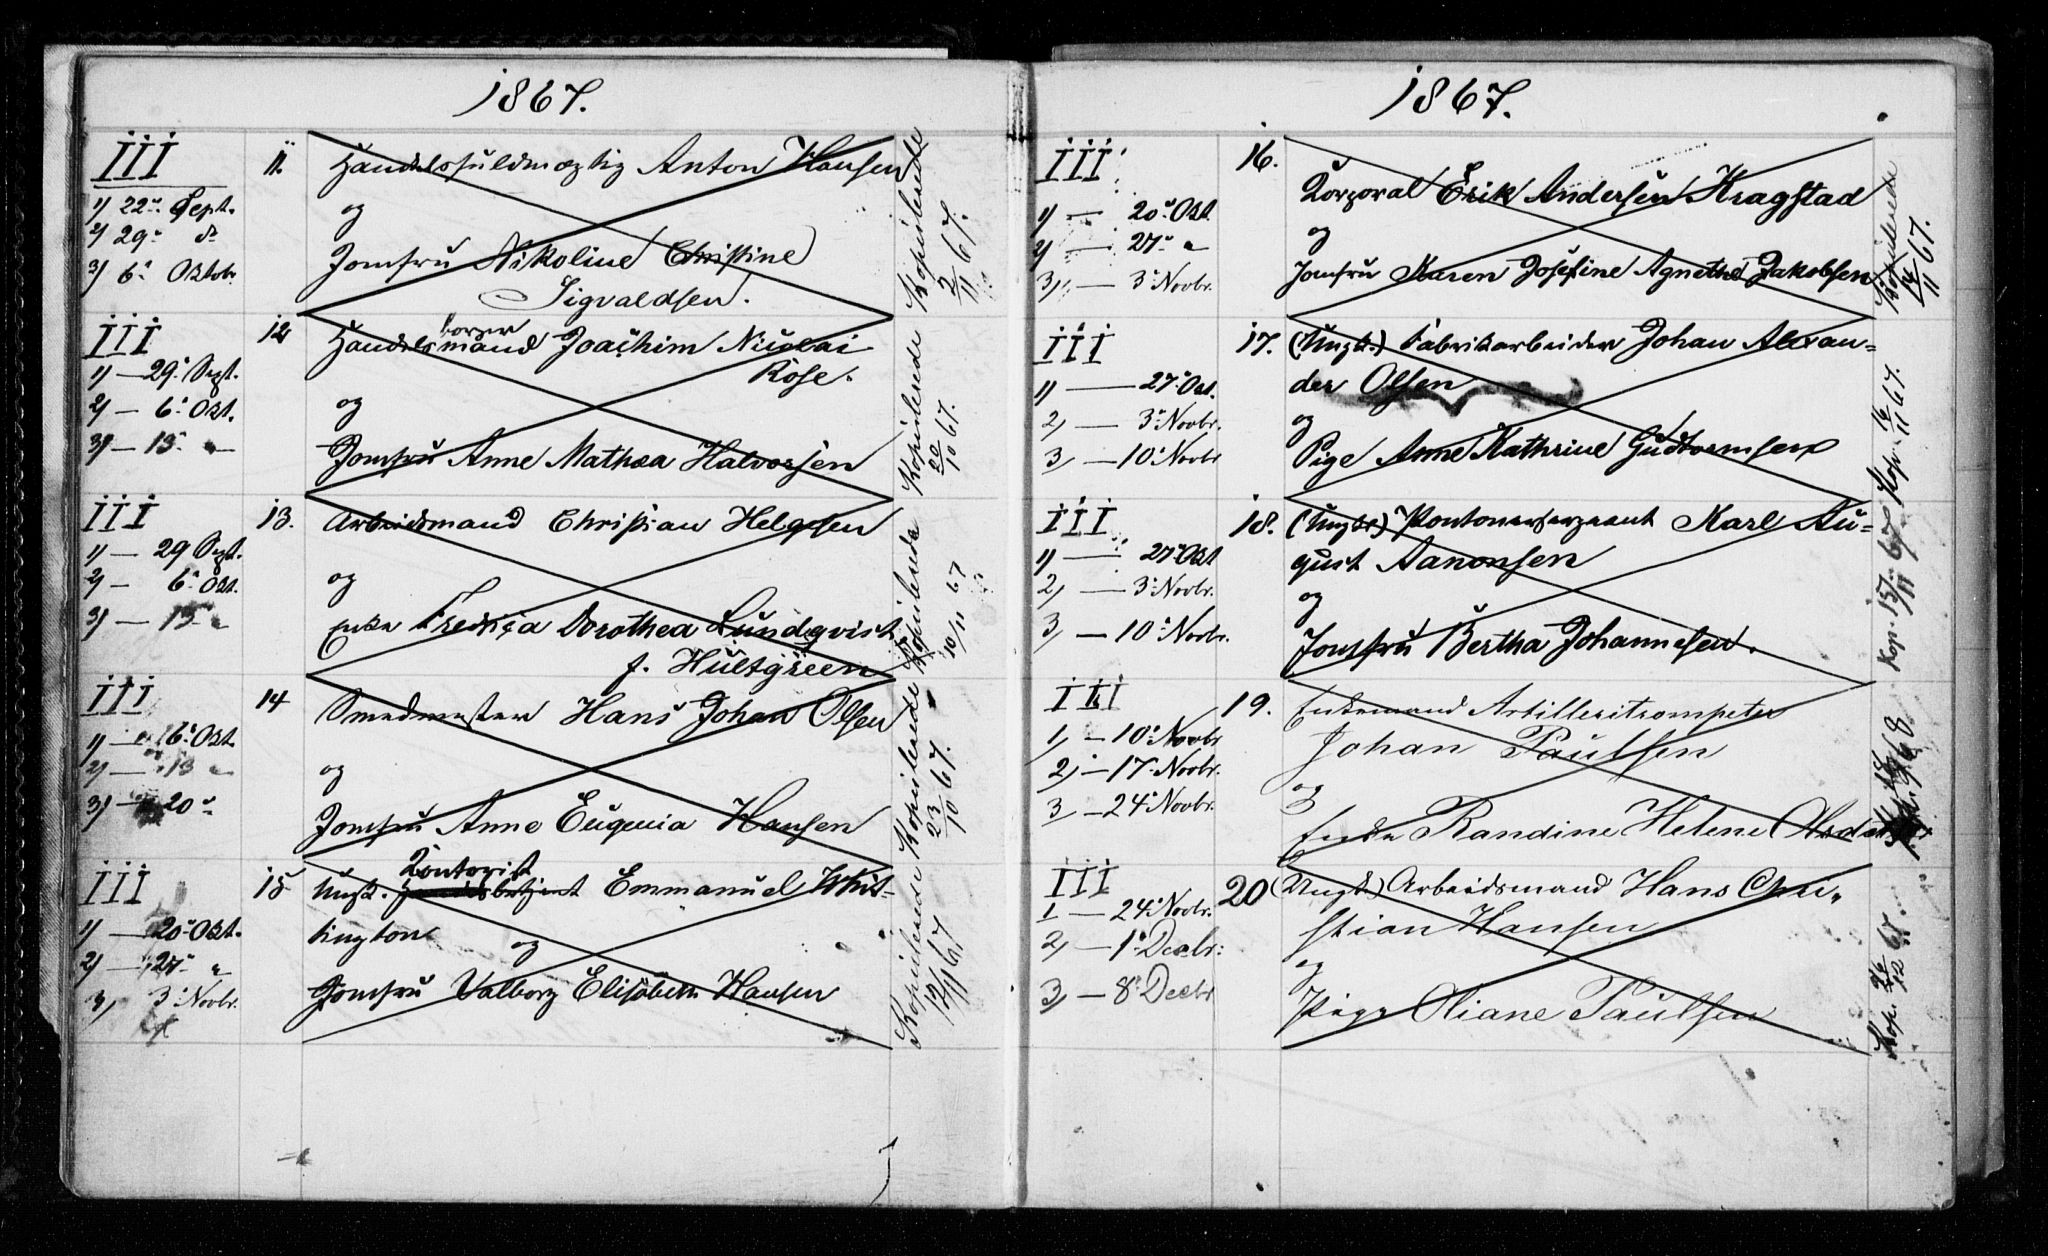 1867.
III
1) 22de Sept.
2) 29de do
3) 6te Oktobr.
11.
Handelsfuldmægtig Anton Hansen
og
Jomfru Nikoline Christine
Sigvaldsen.
Kopulerede
2/11 67.
III
1) — 29de Sept.
2) — 6te Okt.
3) — 13de "
12
borger
Handelsmand Joachim Nicolai
Rose.
og
Jomfru Anne Mathea Halvorsen
Kopulerede
22/10 67.
III
1) — 29 Sept.
2) — 6te Okt.
3) — 13de "
13.
Arbeidsmand Christian Helgesen
og
Enke Fredrica Dorothea Lundqvist
f. Hultgreen
Kopulerede
10/11 67
III
1) — 6te Okt.
2) — 13 "
3) — 20de
14
Smedmester Hans Johan Olsen
og
Jomfru Anne Eugenia Hansen
Kopulerede
23/10 67.
III
1) — 20de Okt.
2) — 27de "
3) 3de Novbr.
15
Kontorist
Ungk. Handelsbetjent Emmanuel Whit-
tington
og
Jomfru Valborg Elisabeth Hansen
Kopulerede
12/11 67.
1867.
III
1) — 20de Okt.
2) — 27de "
3) — 3de Novbr.
16.
Korporal Erik Andersen Kragstad
og
Jomfru Karen Josefine Agnethe Jakobsen
Kopulerede
14/11 67.
III
1) — 27de Okt.
2) — 3de Novbr.
3) — 10de Novbr
17.
(Ungk.) Fabrikarbeider Johan Alexan=
der Olsen
og
Pige Anne Kathrine Gudtormsen
Kop. 16/11 67.
III
1) — 27de Okt
2) — 3de Novbr.
3) — 10de Novbr.
18.
(Ungk.) Pontonersergeant Karl Au=
gust Aanonsen
og
Jomfru Bertha Johannesen.
Kop. 15/11 67
III
1) — 10de Novbr
2) — 17de Novbr.
3) — 24de Novbr.
19.
Enkemand Artilleritrompeter
Johan Paulsen
og
Enke Randine Helene Olsdatter
68
III
1 — 24de Novbr.
2) — 1ste Decbr:
3) — 8de Decbr
20
(Ungk.) Arbeidsmand Hans Chri-
stian Hansen
og
Pige Oliane Paulsen
Kop. 26/12 67.